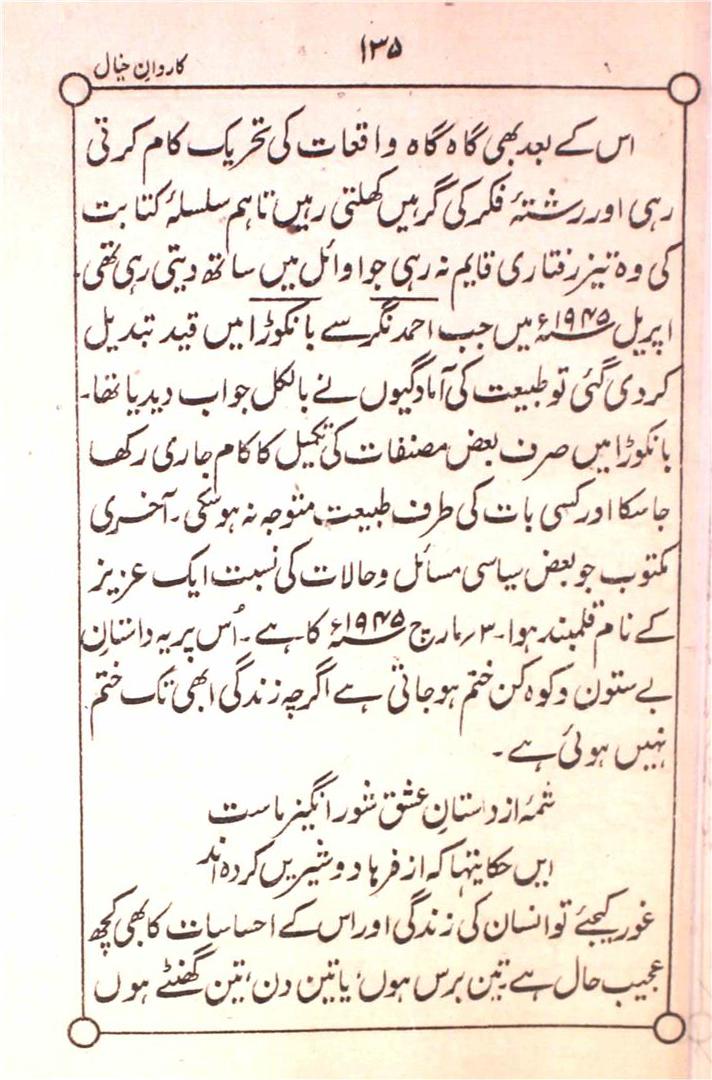 ۱۳۵
کاروانِ خیال
اس کے بعد بھی گاہ گاہ واقعات کی تحریک کام کرتی
رہی اور رشتۂ فکر کی گرہیں کھلتی رہیں تاہم سلسلۂ کتابت
کی وہ تیز رفتاری قایم نہ رہی جو اوائل میں ساتھ دیتی رہی تھی۔
اپریل ۱۹۴۵ء میں جب احمد نگر سے بانکوڑا میں قید تبدیل
کر دی گئی تو طبیعت کی آمادگیوں نے بالکل جواب دیدیا تھا۔
بانکوڑا میں صرف بعض مصنفات کی تکمیل کا کام جاری رکھا
جا سکا اور کسی بات کی طرف طبیعت متوجہ نہ ہو سکی۔ آخری
مکتوب جو بعض سیاسی مسائل و حالات کی نسبت ایک عزیز
کے نام قلمبند ہوا۔ ۳؍ مارچ ۱۹۴۵ء کا ہے۔ اُس پر یہ داستانِ
بے ستون و کوہ کن ختم ہو جاتی ہے اگرچہ زندگی ابھی تک ختم
نہیں ہوئی ہے۔
شمۂ از داستانِ عشق شور انگیز ماست
ایں حکایتہا کہ از فرہاد و شیریں کردہ اند
غور کیجئے تو انسان کی زندگی اور اس کے احساسات کا بھی کچھ
عجیب حال ہے تین برس ہوں یا تین دن، تین گھنٹے ہوں